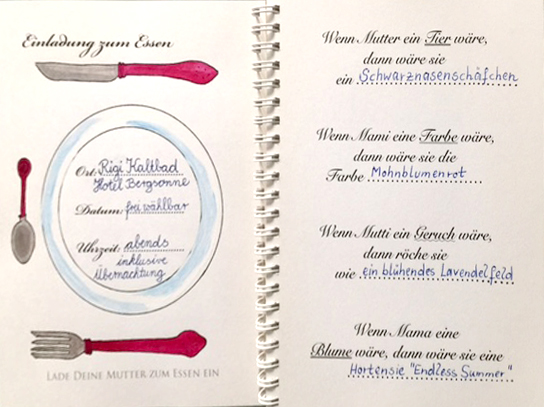 Einladung zum Essen
Ort: Rigi Kaltbad
Hotel Bergsonne
Datum: frei wählbar
Uhrzeit: abends
inklusive
Übernachtung
LADE DEINE MUTTER ZUM ESSEN EIN
Wenn Mutter ein Tier wäre,
dann wäre sie
ein Schwarznasenschäfchen
Wenn Mami eine Farbe wäre,
dann wäre sie die
Farbe Mohnblumenrot
Wenn Mutti ein Geruch wäre,
dann röche sie
wie ein blühendes Lavendelfeld
Wenn Mama eine
Blume wäre, dann wäre sie eine
Hortensie "Endless Summer"